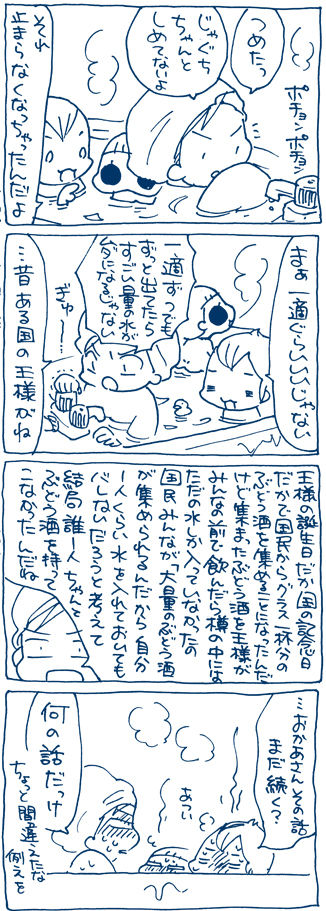 つめたっ
じゃぐち
ちゃんと
しめてないよ
ポチョン
ポチョン
それ
止まらなくなっちゃったんだよ
まぁ一滴ぐらいいいじゃない
一滴ずつでも
ずっと出てたら
すごい量の水が
ムダになるじゃない
ぎゅ〜…
…昔ある国の王様がね
王様の誕生日だか国の記念日
だかで国民からグラス一杯分の
ぶどう酒を集めることになったんだ
けど集まったぶどう酒を王様が
みんなの前で飲んだら樽の中には
ただの水しか入っていなかったの
国民みんなが「大量のぶどう酒
が集められるんだから自分
一人くらい水を入れておいても
バレないだろうと考えて
結局誰一人ちゃんと
ぶどう酒を持って
こなかったんだね
…おかあさんその話
まだ続く?
あつい
何の話だっけ
ちょっと間違えたな
例えを